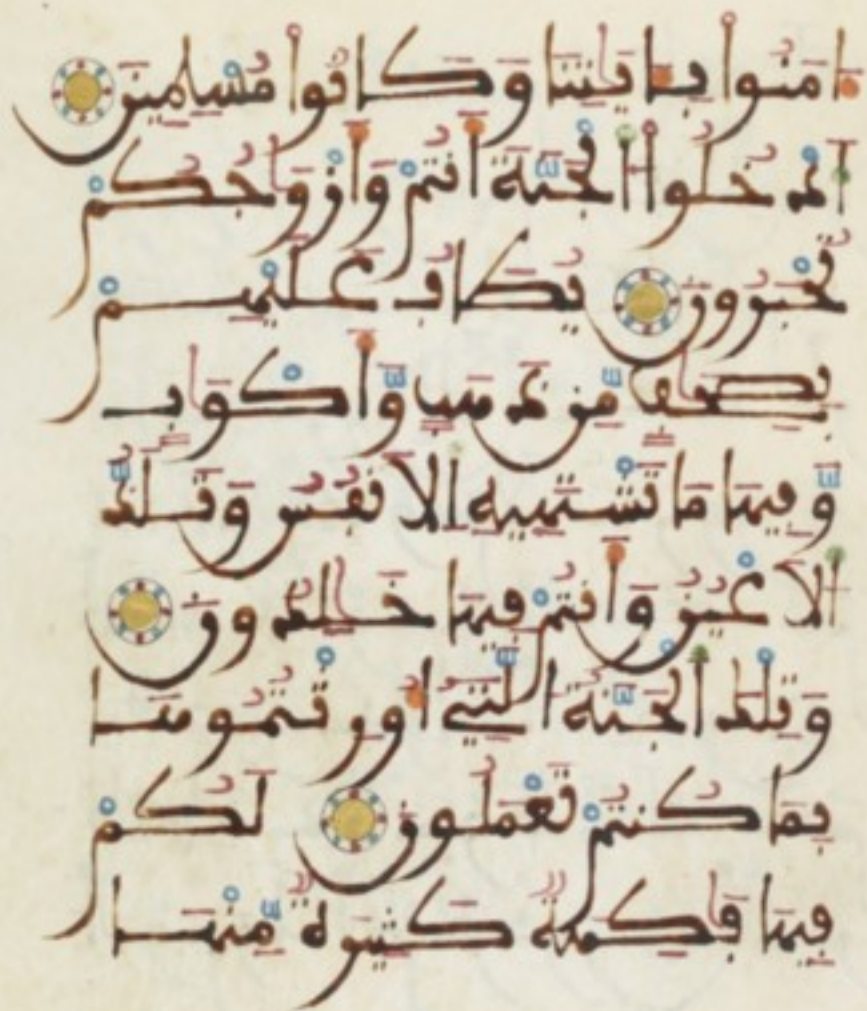 ءَامَنُوا۟ بِـَٔايَٰتِنَا وَكَانُوا۟ مُسْلِمِينَ
ٱدْخُلُوا۟ ٱلْجَنَّةَ أَنتُمْ وَأَزْوَٰجُكُمْ
تُحْبَرُونَ يُطَافُ عَلَيْهِمْ
بِصِحَافٍ مِّن ذَهَبٍ وَّأَكْوَابٍ
وَّفِيهَا مَا تَشْتَهِيهِ ٱلْأَنفُسُ وَتَلَذُّ
ٱلْأَعْيُنُ وَأَنتُمْ فِيهَا خَٰلِدُونَ
وَتِلْكَ ٱلْجَنَّةُ ٱلَّتِي أُورِثْتُمُوهَا
بِمَا كُنتُمْ تَعْمَلُونَ لَكُمْ
فِيهَا فَٰكِهَةٌ كَثِيرَةٌ مِّنْهَا